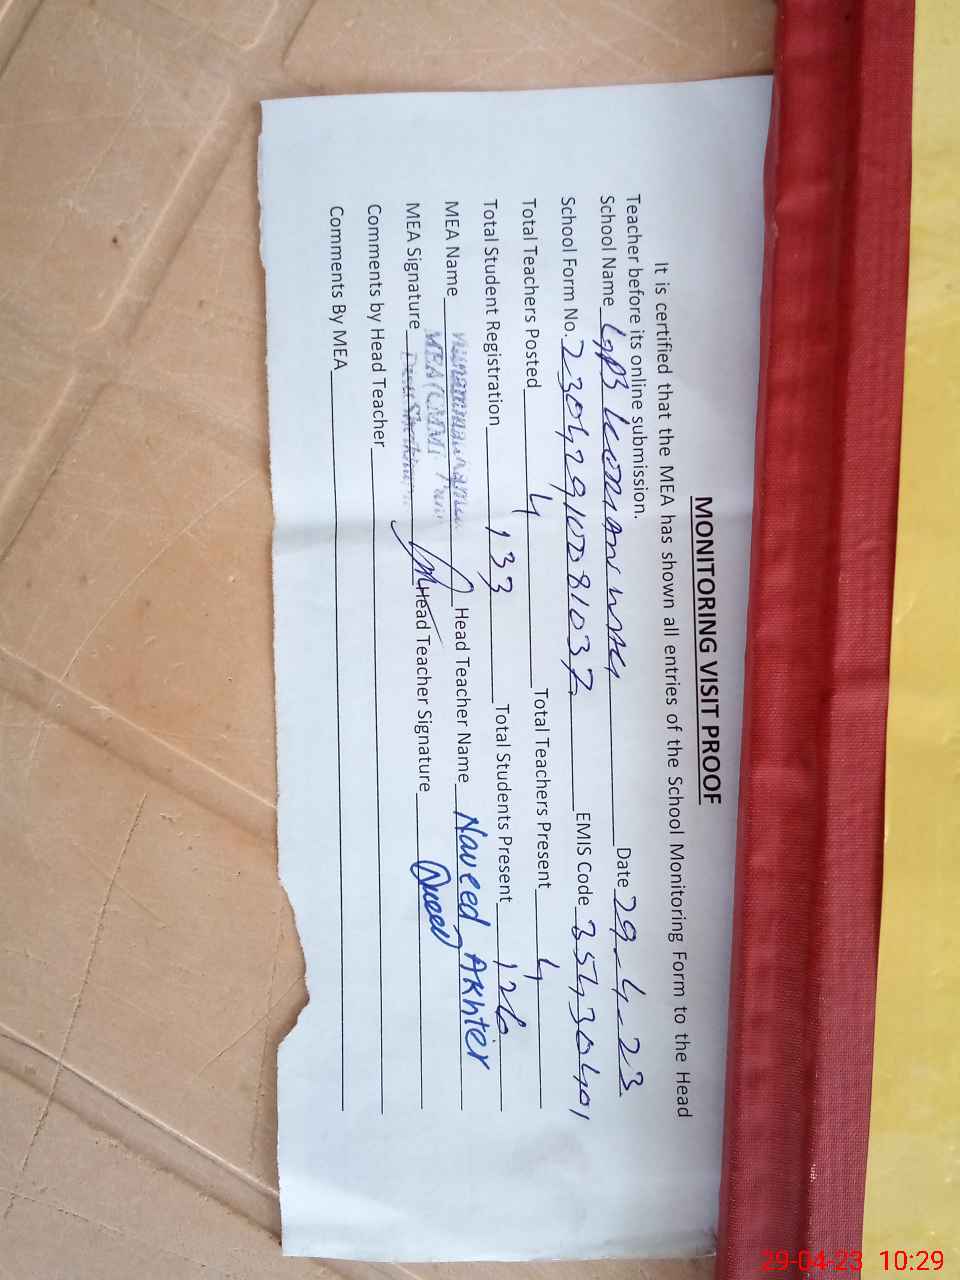 MONITORING VISIT PROOF
It is certified that the MEA has shown all entries of the School Monitoring Form to the Head
Teacher before its online submission.
School Name GPS Date 29-4-23
School Form No. 230429100081037 EMIS Code 35430401
Total Teachers Posted 4 Total Teachers Present 4
Total Student Registration 133 Total Students Present 126
MEA Name Head Teacher Name Naveed Akhter
MEA Signature MEA (CMMF Head Teacher Signature
Comments by Head Teacher
Comments By MEA
29-04-23 10:29